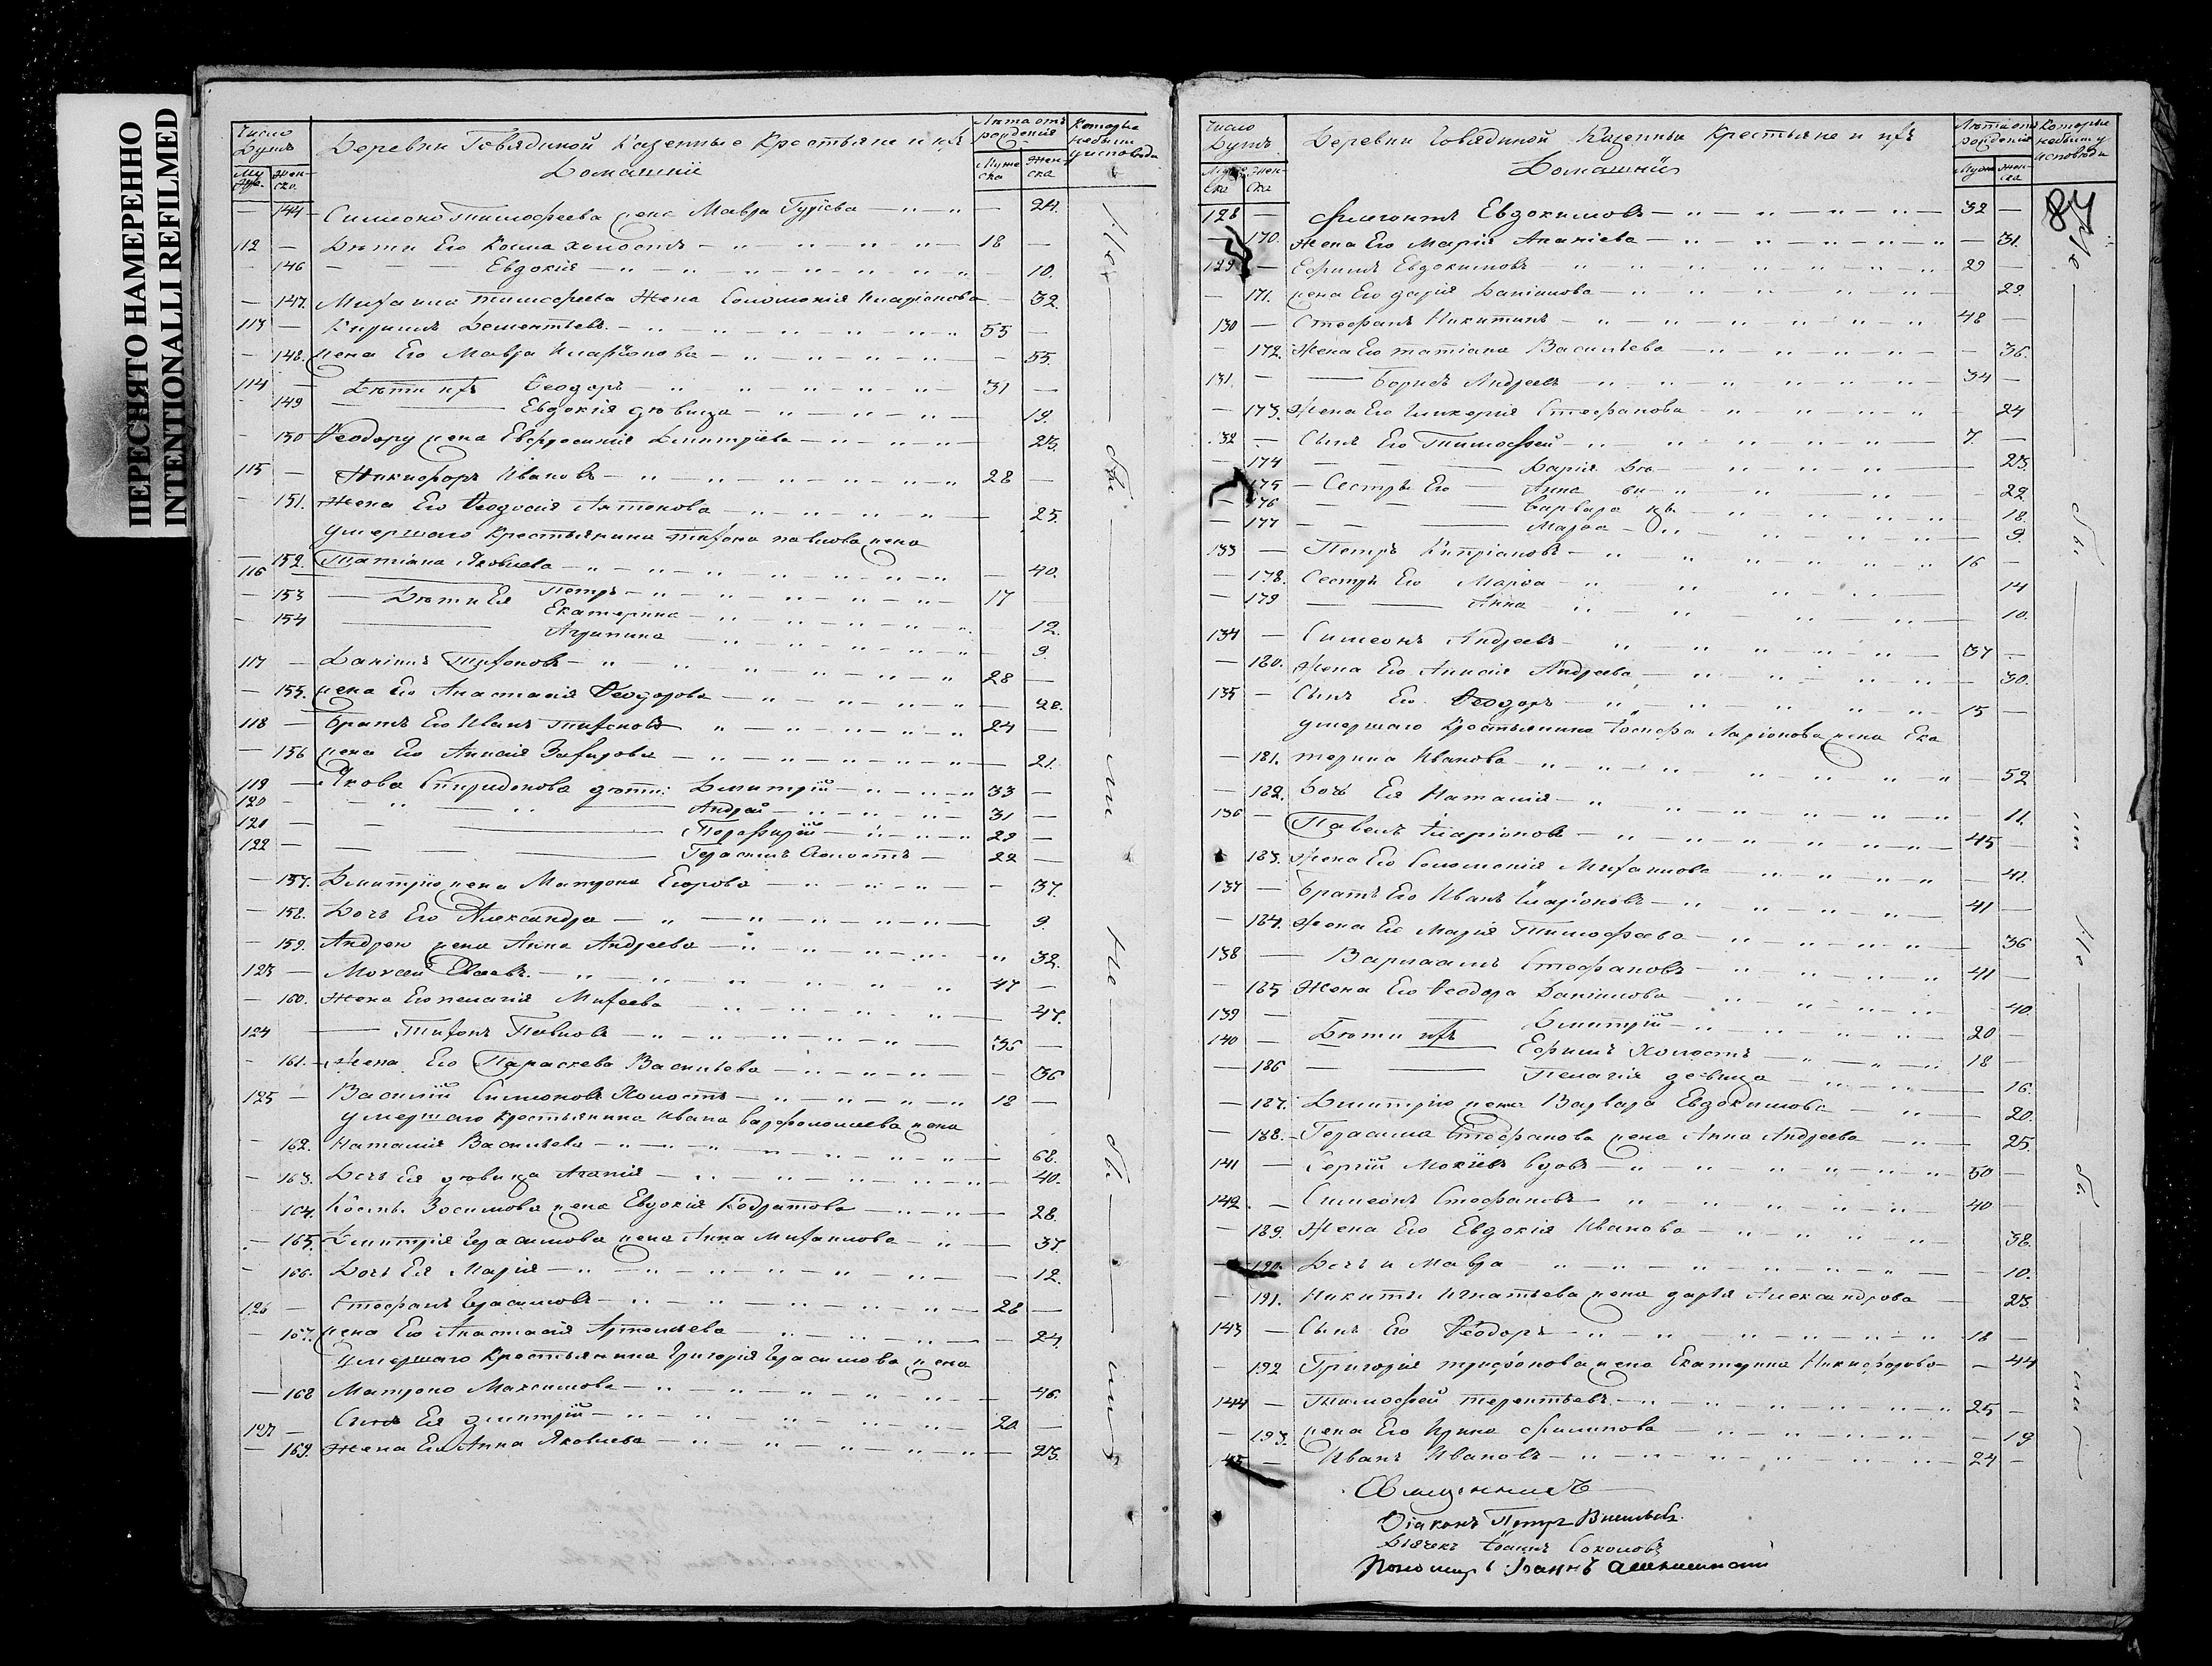 ПЕРЕСНЯТО НАМЕРЕННО
INTENTIONALLI REFILMED
Число Душъ
Деревни Говядиной Казенные Крестьяне и ихъ
Домашніи
Лѣта отъ рожденія
Которые небыли у исповѣди
Муж. Женска
Мужеска Женска
— 144 Симеона Тимофеева жена Мавра Гуріева — 24.
112 — Дѣти Его Косма холостъ 18 —
— 146 Евдокія — 10.
— 147. Михаила Тимофеева Жена Соломонія Иларіонова — 32.
113 — Кирилъ Дементьевъ 55 —
— 148. жена Его Мавра Иларіонова — 55.
114 — Дѣти ихъ Ѳеодоръ 31 —
149 Евдокія дѣвица 19.
— 150 Ѳеодору жена Евфросинія Дмитріева 23.
115 — Никифоръ Ивановъ 28 —
— 151. Жена Его Ѳеодосія Антонова — 25.
умершаго крестьянина Тихона Павлова жена
— 152. Татіана Яковлева — 40.
116 Дѣти Ея Петръ 17
— 153 Екатерина 12.
— 154 Агрипина 9.
117 — Даніилъ Тихоновъ 28 —
— 155. жена Его Анастасія Ѳеодорова — 28.
118 — Братъ Его Иванъ Тихоновъ 24 —
— 156 жена Его Анисія — 21.
119 — Якова Спиридонова дѣти: Дмитрій 33 —
120 — Андрей 31 —
121 — Порфирій 29 —
122 — Герасимъ Холостъ 22 —
— 157. Дмитрію жена Матрона Егорова — 37.
— 158. Дочь Его Александра 9.
— 159. Андрею жена Анна Андреева 32.
123 — Мокей 47 —
— 160. Жена Его Пелагія Михеева 47.
124 Тихонъ Павловъ 36 —
— 161. Жена Его Параскева Васильева — 36
125 — Василій Симеоновъ Холостъ 18 —
умершаго крестьянина Ивана Варфоломеева жена
— 162. Наталія Васильева 68.
— 163. Дочь Ея дѣвица Агапія 40.
— 164. Зосимова жена Евдокія Кодратова — 28.
— 165. Дмитрія Герасимова жена Анна Михаилова — 37.
— 166. Дочь Ея Марія — 12.
126 — Стефанъ Герасимовъ 28 —
— 167. жена Его Анастасія Артемьева — 24.
Умершаго Крестьянина Григорія Герасимова жена
— 168 Матрона Максимова 46.
127 — Сынъ Ея Дмитрій 20 —
— 169. Жена Его Анна Яковлева — 23.
Число Душъ.
Деревни Говядиной Казенныя Крестьяне и ихъ
Домашніи
Лѣта отъ рожденія
Которые небыли у исповѣди
87
128 — Флегонтъ Евдокимовъ 32 —
— 170. Жена Его Марія Ананіева — 31.
129 — Ефимъ Евдокимовъ 29 —
— 171. жена Его Дарія Даніилова 29.
130 — Стефанъ Никитинъ 48 —
— 172. Жена Его Татіана Васильева — 36.
131. — Борисъ Андреевъ 34 —
— 173. Жена Его Гликерія Стефанова — 24
132 — Сынъ Его Тимофей 7. —
— 174 Дарія Дѣ 23.
175 — Сестры Его — Анна ви 22
— 176 Варвара цы 18.
— 177 Марѳа 9.
133 — Петръ Кипріановъ 16 —
— 178. Сестры Его Марѳа 14
— 179 Анна 10.
134 — Симеонъ Андреевъ 37 —
— 180. Жена Его Анисія Андреева 30.
135 — Сынъ Его Ѳеодоръ 15 —
умершаго крестьянина Іосифа Ларіонова жена Ека
— 181. терина Иванова — 52
— 182. Дочь Ея Наталія — 11.
136 — Павелъ Иларіоновъ 45 —
183. Жена Его Соломонія Михаилова — 41.
137 — Братъ Его Иванъ Иларіоновъ 41 —
— 184. Жена Его Марія Тимофеева 36
138 — Варлаамъ Стефановъ 41 —
— 185 Жена Его Ѳеодора Даніилова 40
139 — Дѣти ихъ Дмитрій 20 —
140 — Ефимъ Холостъ 18 —
— 186 Пелагія дѣвица 16.
— 187. Дмитрію жена Варвара Евдокимова 20.
— 188. Герасима Стефанова жена Анна Андреева 25.
141 — Сергій Мокіевъ вдовъ 50 —
142. — Симеонъ Стефановъ 40 —
— 189. Жена Его Евдокія Иванова 38.
— 190. Дочь и Мавра — 10.
— 191. Никиты Игнатьева жена Дарія Александрова — 23
143 — Сынъ Его Ѳеодоръ 18 —
— 192 Григорія Трифонова жена Екатерина Никифорова — 44
144 — Тимофей Терентьевъ 25 —
— 193. жена Его Ирина Филипова — 19
145 — Иванъ Ивановъ 24 —
Священникъ
Діаконъ Петръ Васильевъ.
Дьячекъ Іоаннъ Соколовъ
Пономарь Іоаннъ